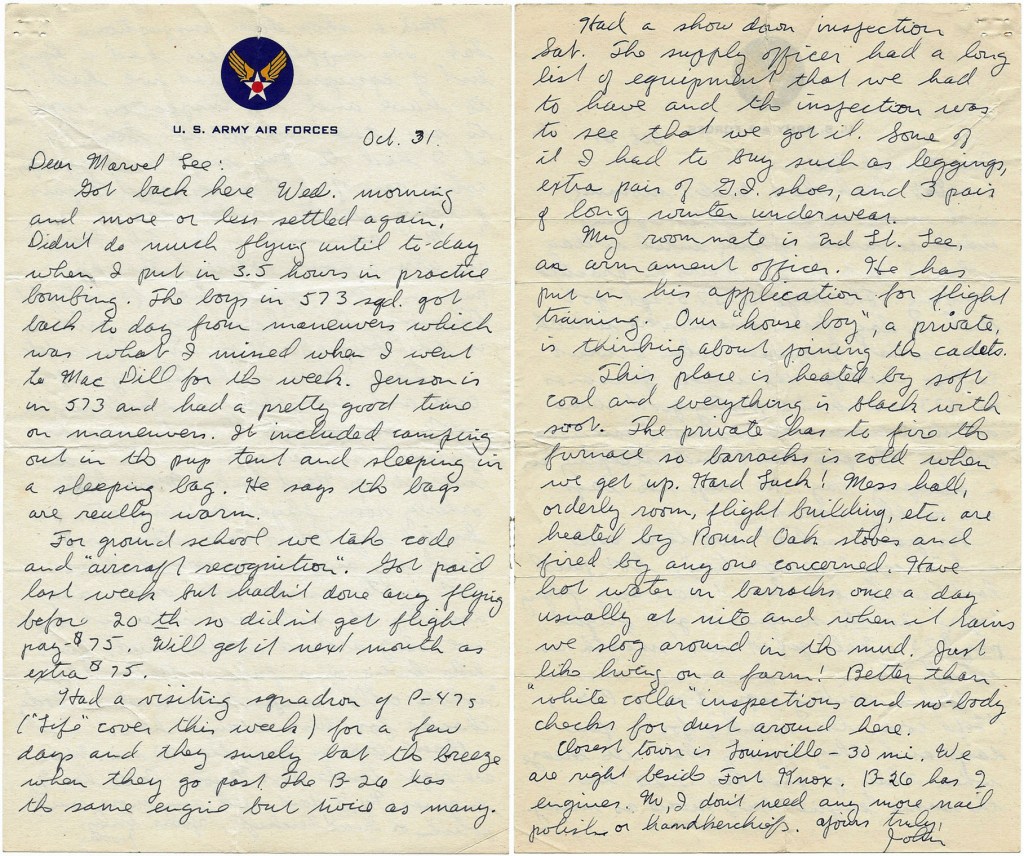 U. S. ARMY AIR FORCES
Oct. 31.
Dear Marvel Lee:
Got back here Wed. morning
and more or less settled again.
Didn't do much flying until to-day
when I put in 3.5 hours in practice
bombing. The boys in 573 sqd. got
back to day from maneuvers which
was what I missed when I went
to Mac Dill for the week. Jenson is
in 573 and had a pretty good time
on maneuvers. It included camping
out in the pup tent and sleeping in
a sleeping bag. He says the bags
are really warm.
For ground school we take code
and "aircraft recognition". Got paid
last week but hadn't done any flying
before 20 th so didn't get flight
pay - $75. Will get it next month as
extra $75.
Had a visiting squadron of P-47s
("Life" cover this week) for a few
days and they surely bat the breeze
when they go past. The B-26 has
the same engine but twice as many.
Had a show down inspection
Sat. The supply officer had a long
list of equipment that we had
to have and the inspection was
to see that we got it. Some of
it I had to buy such as leggings,
extra pair of G.I. shoes, and 3 pair
of long winter underwear.
My roommate is 2nd Lt. Lee,
an armament officer. He has
put in his application for flight
training. Our "house boy", a private,
is thinking about joining the cadets.
This place is heated by soft
coal and everything is black with
soot. The private has to fire the
furnace so barracks is cold when
we get up. Hard Luck! Mess hall,
orderly room, flight building, etc. are
heated by Round Oak stoves and
fired by any one concerned. Have
hot water in barracks once a day
usually at nite and when it rains
we slog around in the mud. Just
like living on a farm! Better than
"white collar" inspections and no-body
checks for dust around here.
Closest town is Lousville - 30 mi. We
are right beside Fort Knox. B-26 has 2
engines. No, I don't need any more nail
polish or handkerchiefs. Yours truly,
John